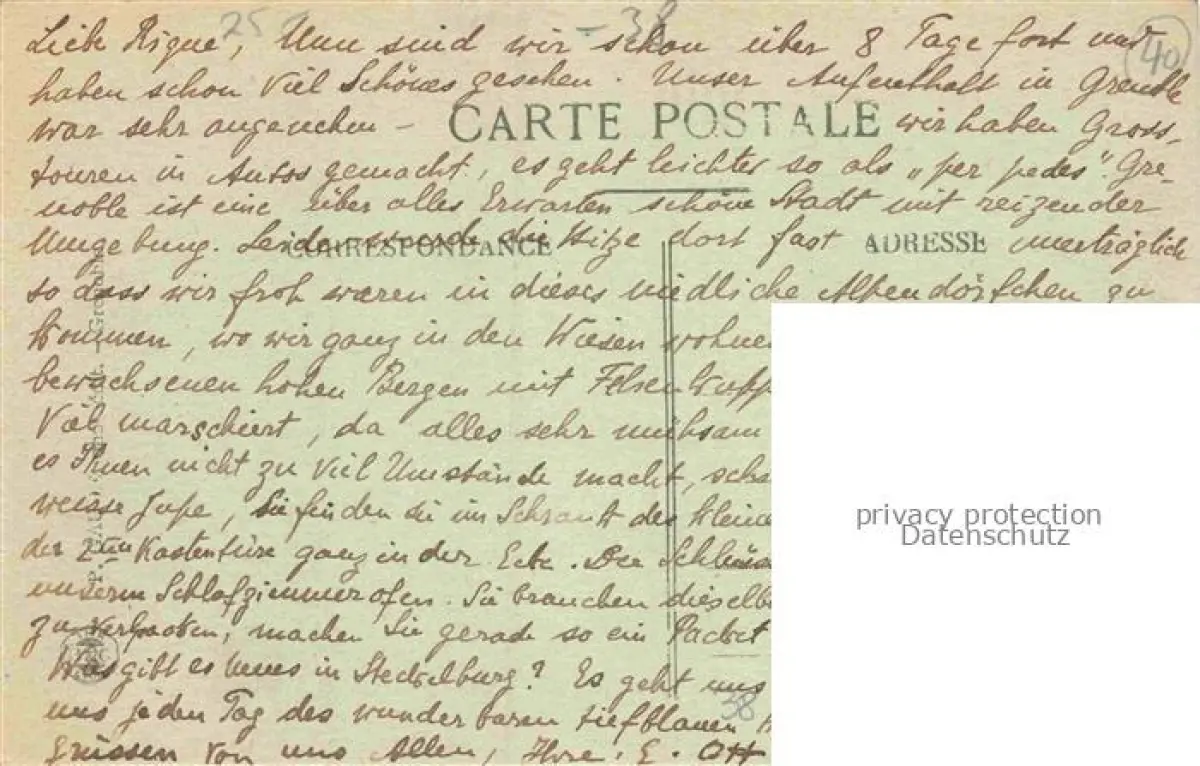 25 - 38
40
Liebe Rique, Nun sind wir schon über 8 Tage fort und
haben schon viel Schönes gesehen. Unser Aufenthalt in Grenoble
war sehr angenehm - CARTE POSTALE wir haben Gross-
touren in Autos gemacht, es geht leichter so als „per pedes". Gre-
noble ist eine über alles Erwarten schöne Stadt mit reizender
Umgebung. Leider wurde die Hitze dort fast unerträglich
CORRESPONDANCE ADRESSE
so dass wir froh waren in dieses niedliche Alpendörfchen zu
kommen, wo wir ganz in den Wiesen wohne
bewachsenen hohen Bergen mit Felsen
Viel marschiert, da alles sehr mühsam
es Ihnen nicht zu viel Umstände macht, sch
weisse Jupe, Sie finden sie im Schrank des kleine
der 2ten Kastentüre ganz in der Ecke. Der Schlüss
unserm Schlafzimmerofen. Sie brauchen dieselb
zu verpacken, machen Sie gerade so ein Packet
Was gibt es Neues in Steckelburg? Es geht uns
uns jeden Tag des wunderbaren tiefblauen
38
Grüssen von uns Allen, Ihre E. Ott
privacy protection
Datenschutz